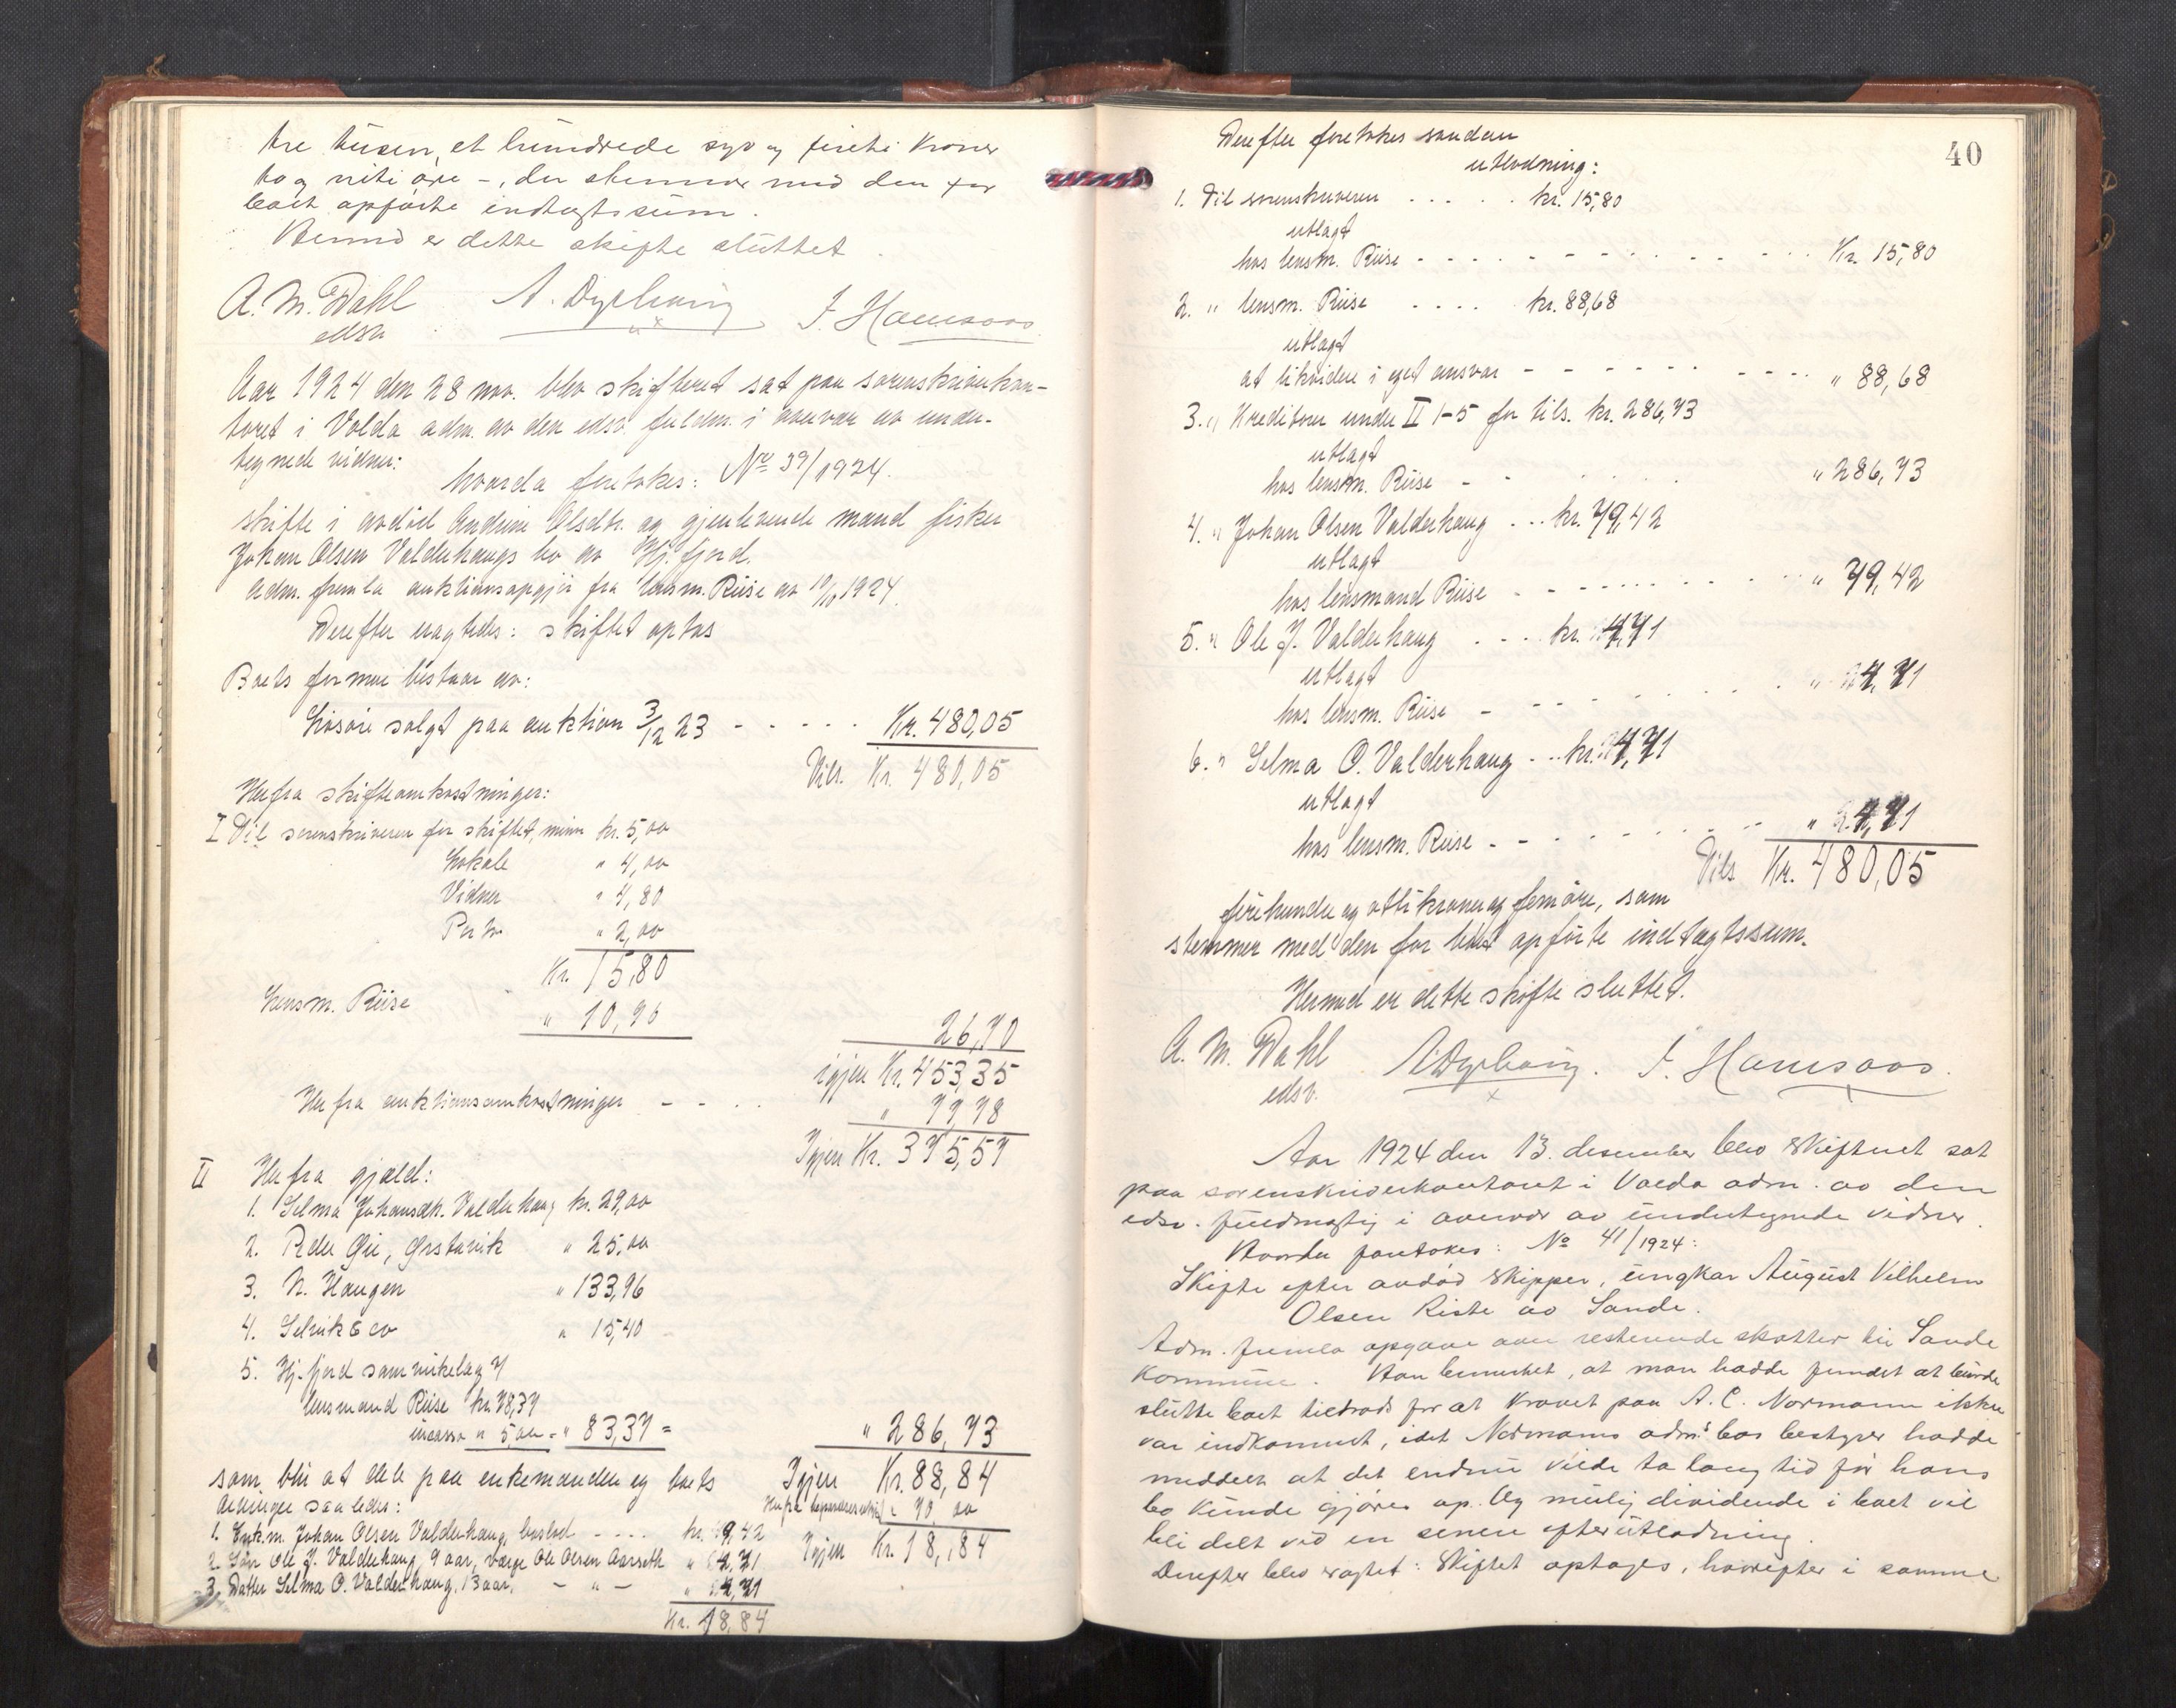 tre tusen, et hundrede syv og firti kroner
to og niti øre -, der stemmer med den for
boet opførte indtægtssum.
Hermed er dette skifte sluttet.
A. M. Dahl
edsv.
Aar 1924 den 28 nov. blev skifteret sat paa sorenskriverkon-
toret i Volda adm. av den edsv. fuldm. i overvær av under-
tegnede vidner:
hvorda foretokes: No 39/1924.
skifte i avdød Andrine Olsdtr. og gjenlevende mand fisker
Johan Olsen Valderhaugs bo av Hj.fjord.
Adm. fremla auktionsopgjør fra lensm. Riise av 1924.
Derefter eragtedes: skiftet optas
Boets formue bestaar av:
Løsøre solgt paa auktion 3/12 23 - - - - - Kr. 480,05
Tils. Kr. 480,05
Herfra skifteomkostninger:
I Til sorenskriveren for skiftet, minn kr. 5,00
Lokale " 4,00
Vidner " 4,80
Porto " 2,00
Kr. 15,80
Lensm. Riise " 10,90
26,70
igjen Kr. 453,35
Herfra auktionsomkostninger - - . . " 77,78
Igjen Kr. 375,57
II Herfra gjæld:
1. Selma Johansdtr. Valderhaug kr. 29,00
2. Peder Ørstavik " 25,00
3. N. Haugen " 133,96
4. Selvik & co " 15,40
5. Hj.fjord samvirkelag v/
lensmand Riise kr. 78,37
incasso " 5,00 = " 83,37 =
" 286,73
Igjen Kr. 88,84
" 70,00
Igjen Kr. 18,84
som blir at dele paa enkemanden og boets
arvinger saaledes:
1. Enkm. Johan Olsen Valderhaug, boslod - - - - kr. 9,42
2. Søn Ole J. Valderhaug, 9 aar, værge Ole Olsen Aarseth " 4,71
3. Datter Selma O. Valderhaug, 13 aar, - " - " 4,71
Kr. 18,84
40
Derefter foretokes saadan
utlodning:
1. Til sorenskriveren . . . . . kr. 15,80
utlagt
hos lensm. Riise - - - - - - - - Kr. 15,80
2. " lensm. Riise . . . . kr. 88,68
utlagt
at likvidere i eget ansvar - - - - - - - " 88,68
3. " Kreditorer under II 1-5 for tils. kr. 286,73
utlagt
hos lensm. Riise - - " 286,73
4. " Johan Olsen Valderhaug . . . kr. 79,42
utlagt
hos lensmand Riise - - - - - - " 79,42
5. " Ole J. Valderhaug . . . kr. 4,71
utlagt
hos lensm. Riise - - - - - " 4,71
6. " Selma O. Valderhaug - . . kr. 4,71
utlagt
hos lensm. Riise - - - - - " 4,71
Tils. Kr. 480,05
firehundre og otti kroner og fem øre, som
stemmer med den for boet opførte indtægtssum.
Hermed er dette skifte sluttet.
A. M. Dahl
edsv.
Aar 1924 den 13. desember blev skifteret sat
paa sorenskriverkontoret i Volda adm. av den
edsv. fuldmægtig i overvær av undertegnede vidner.
Hvorda foretokes: No 41/1924:
Skifte efter avdød skipper, ungkar August Vilhelm
Olsen Riste av Sande.
Adm. fremla opgave over resterende skatter til Sande
kommune. Han bemerket, at man hadde fundet at burde
slutte boet tiltrods for at kravet paa A. C. Normann ikke
var indkommet, idet Normanns adm: bos bestyrer hadde
meddelt at det endnu vilde ta lang tid før hans
bo kunde gjøres op. Og mulig dividende i boet vil
bli delt ved en senere efterutlodning.
Derefter blev eragtet: Skiftet optages, hvorefter i samme